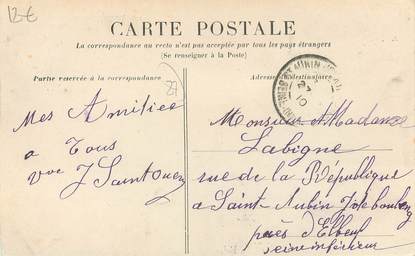 12 €
CARTE POSTALE
La correspondance au recto n'est pas acceptée par tous les pays étrangers
(Se renseigner à la Poste)
Partie réservée à la correspondance
Adresse du destinataire
27
Mes Amitiés
a Tous
J Saintouen
Monsieur et Madame
Labigne
rue de la République
a Saint Aubin Jote boulleng
près d'Elbeuf
Seine inférieur